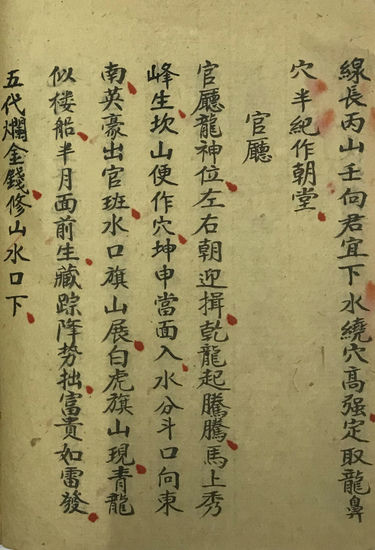 線長丙山壬向君宜下水繞穴高强定取龍鼻
穴半紀作朝堂
官廳
官廳龍神位左右朝迎揖乾龍起騰騰馬上秀
峰生坎山使作穴坤申當面入水分斗口向東
南英豪出官班水口旗山展白虎旗山現青龍
似楼船半月面前生藏踪降势拙富貴如雷發
五代爛金錢修山水口下